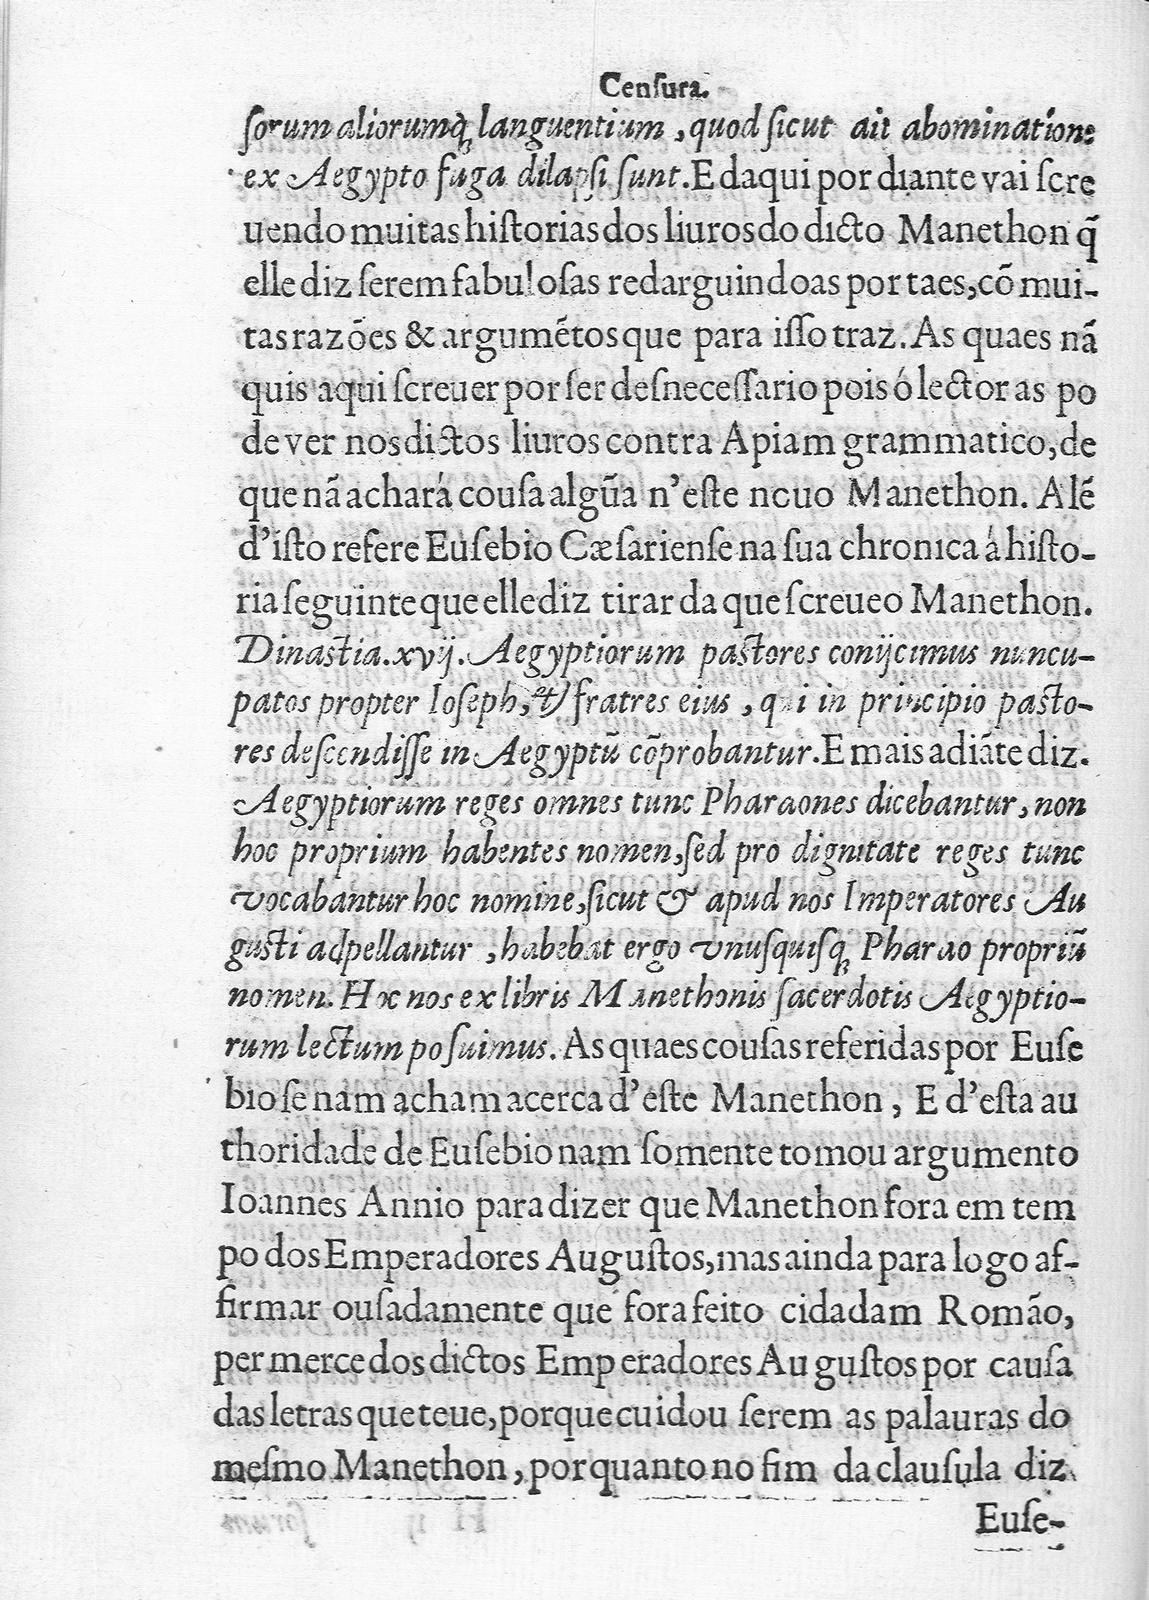 Cenſura.
ſorum aliorumq́; languentium, quod ſicut ait abominatione
ex Aegypto fuga dilapſi ſunt. E daqui por diante vai ſcre
uendo muitas hiſtorias dos liuros do dicto Manethon q̃
elle diz ſerem fabuloſas redarguindoas por taes, cõ mui-
tas razões & argumẽtos que para iſſo traz. As quaes nã
quis aqui ſcreuer por ſer deſneceſſario pois ó lector as po
de ver nos dictos liuros contra Apiam grammatico, de
que nã achará couſa algũa n'eſte nouo Manethon. Alẽ
d'iſto refere Euſebio Cæſarienſe na ſua chronica á hiſto-
ria ſeguinte que elle diz tirar da que ſcreueo Manethon.
Dinaſtia. xvij. Aegyptiorum paſtores conijcimus nuncu-
patos propter Ioſeph, & fratres eius, qui in principio paſto-
res deſcendiſſe in Aegyptũ cõprobantur. E mais adiãte diz.
Aegyptiorum reges omnes tunc Pharaones dicebantur, non
hoc proprium habentes nomen, ſed pro dignitate reges tunc
vocabantur hoc nomine, ſicut & apud nos Imperatores Au
guſti adpellantur, habebat ergo vnuſquiſq; Pharao propriũ
nomen. Hæc nos ex libris Manethonis ſacerdotis Aegyptio-
rum lectum poſuimus. As quaes couſas referidas por Euſe
bio ſe nam acham acerca d'eſte Manethon, E d'eſta au
thoridade de Euſebio nam ſomente tomou argumento
Ioannes Annio para dizer que Manethon fora em tem
po dos Emperadores Auguſtos, mas ainda para logo af-
firmar ouſadamente que fora feito cidadam Romão,
per merce dos dictos Emperadores Auguſtos por cauſa
das letras que teue, porque cuidou ſerem as palauras do
meſmo Manethon, por quanto no fim da clauſula diz
Euſe-